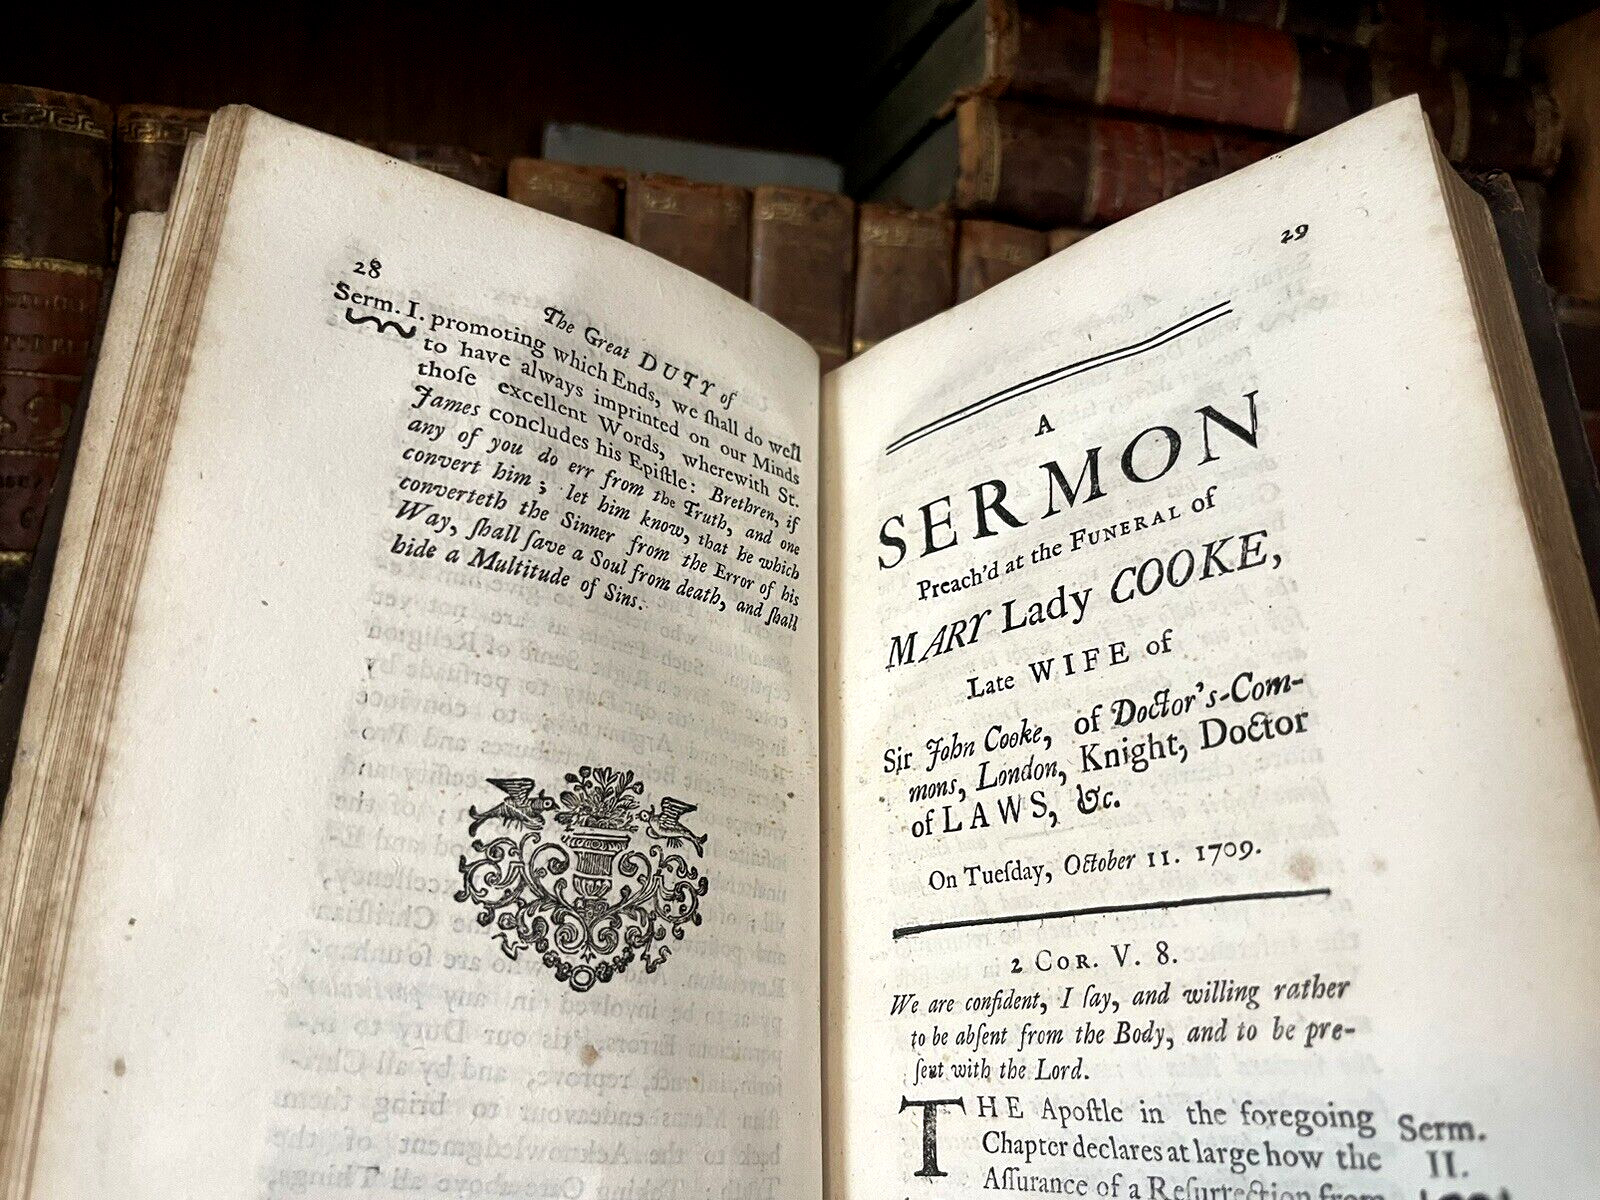 28
The Great DUTY of
Serm. I. promoting which Ends, we ſhall do well
to have always imprinted on our Minds
thoſe excellent Words, wherewith St.
James concludes his Epiſtle: Brethren, if
any of you do err from the Truth, and one
convert him; let him know, that he which
converteth the Sinner from the Error of his
Way, ſhall ſave a Soul from death, and ſhall
hide a Multitude of Sins.
29
A
SERMON
Preach'd at the FUNERAL of
MARY Lady COOKE,
Late WIFE of
Sir John Cooke, of Doctor's-Com-
mons, London, Knight, Doctor
of LAWS, &c.
On Tueſday, October 11. 1709.
2 COR. V. 8.
We are confident, I ſay, and willing rather
to be abſent from the Body, and to be pre-
ſent with the Lord.
THE Apoſtle in the foregoing Serm.
Chapter declares at large how the II.
Aſſurance of a Reſurrection from